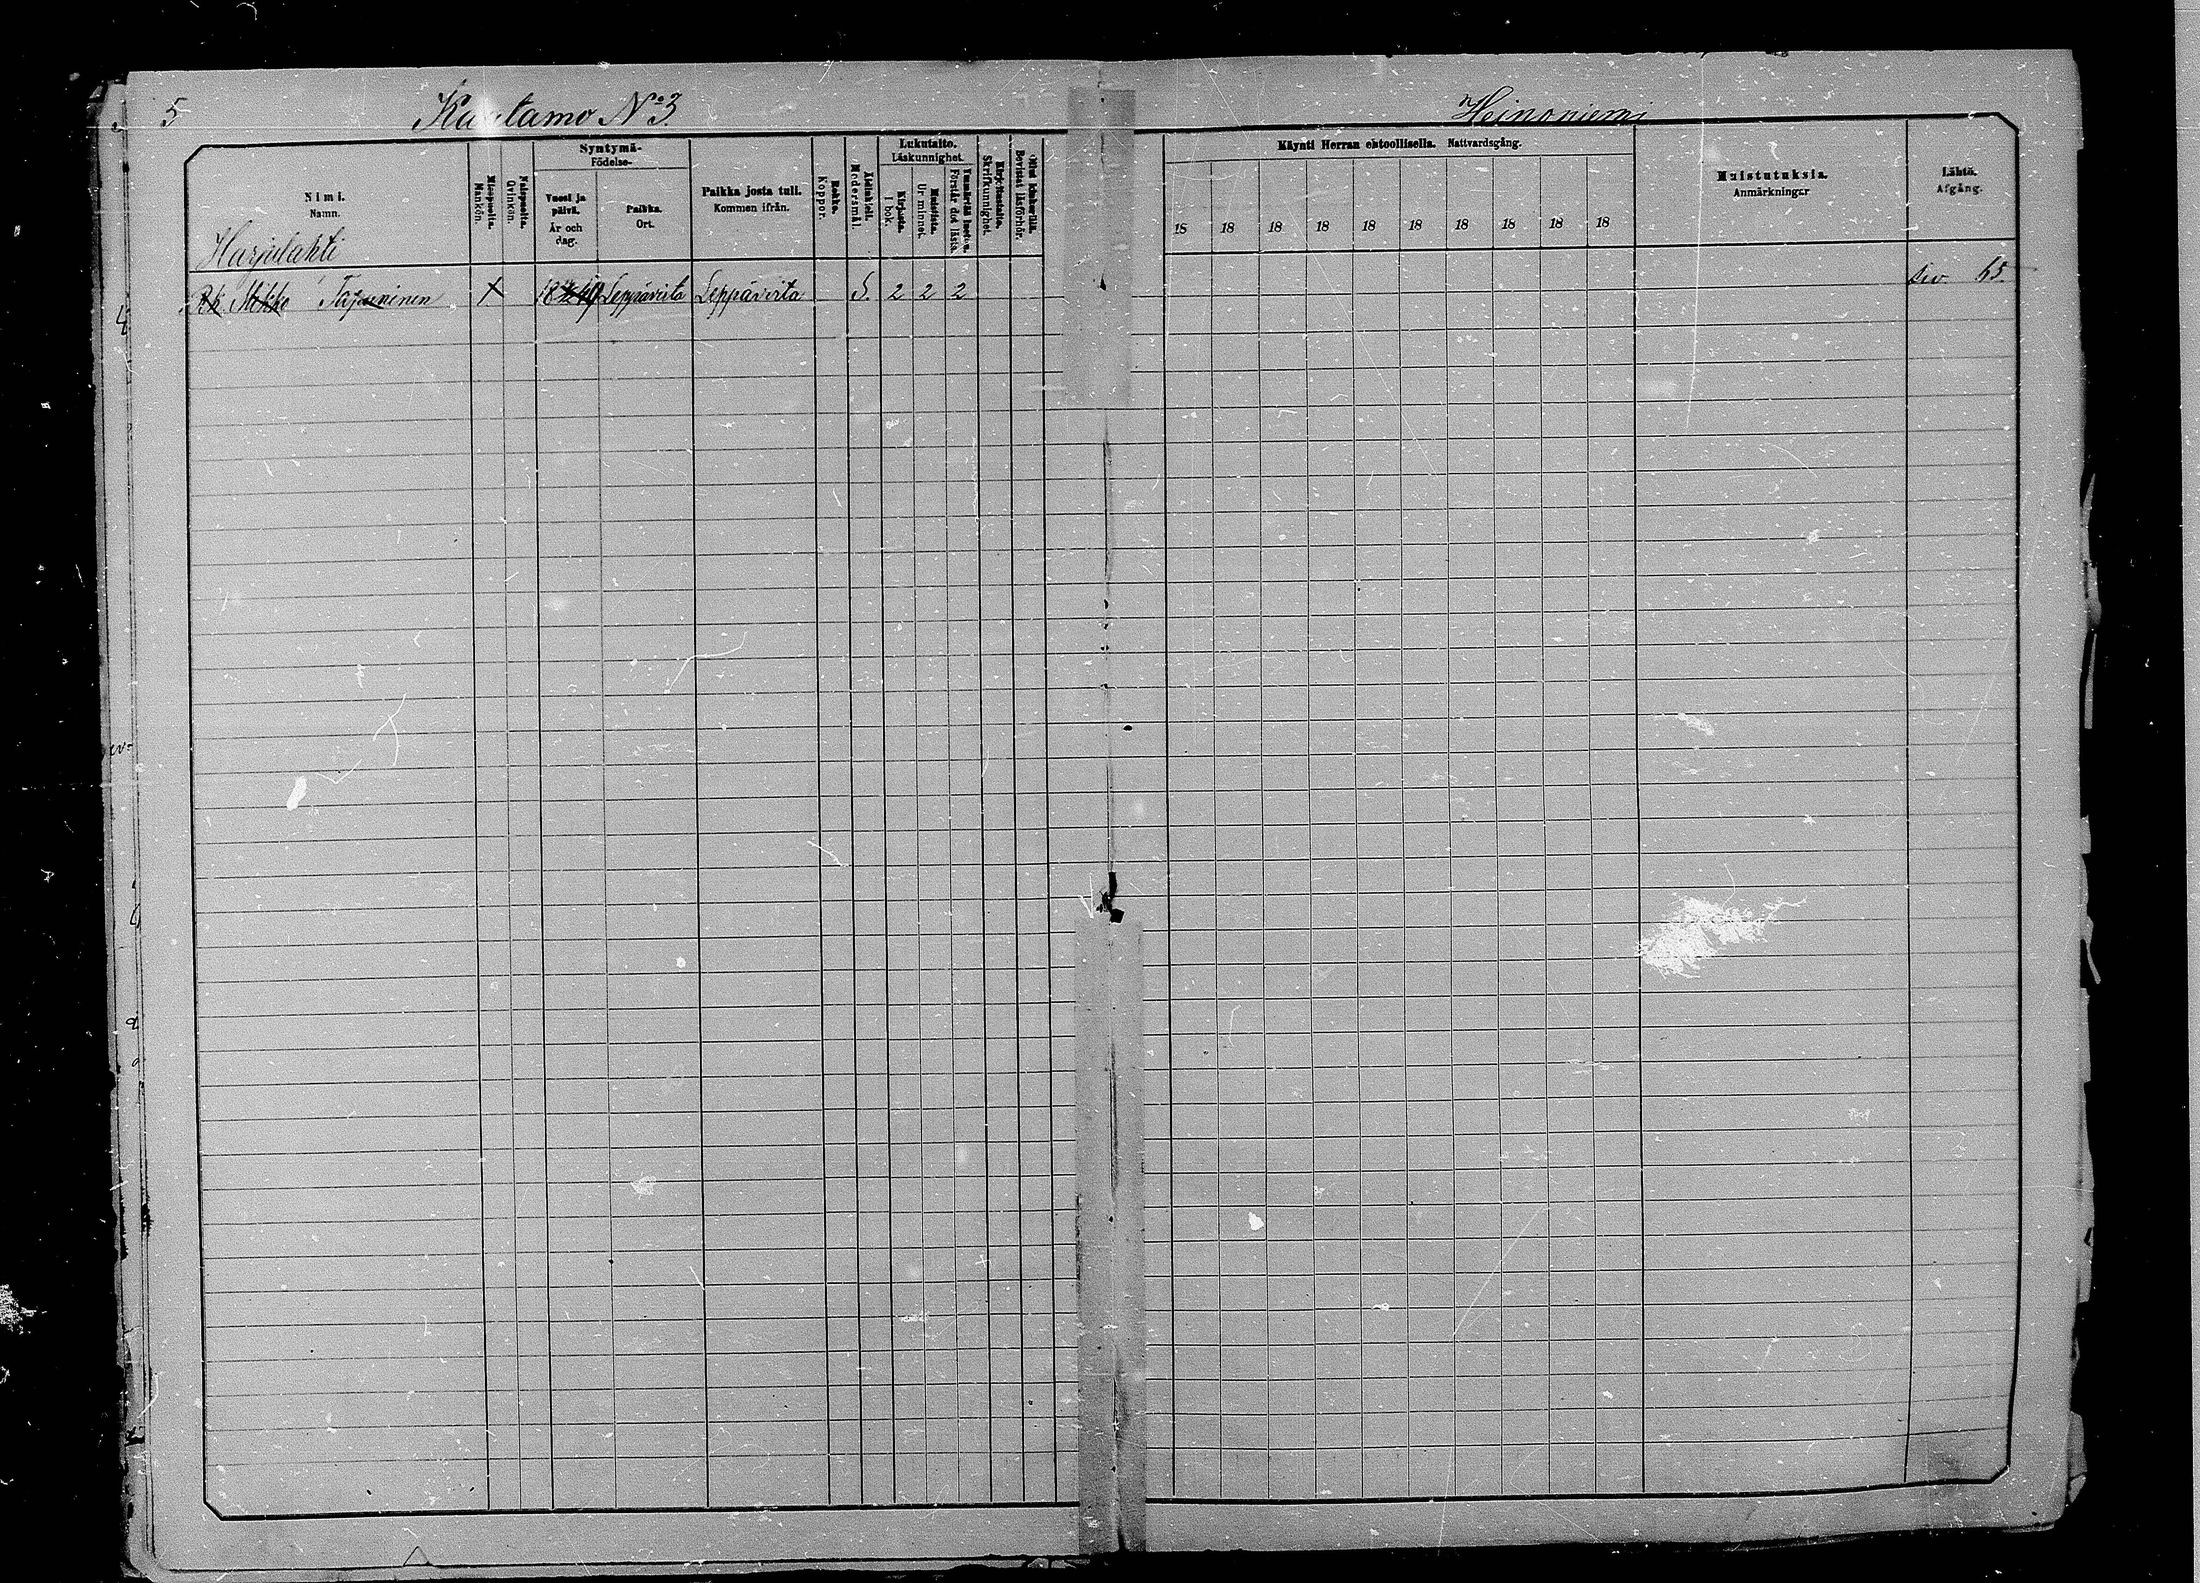 5 Kautamo No 3. Heinoniemi
Nimi.
Namn.
Miespuolta.
Mankön.
Naispuolta.
Qvinkön.
Syntymä-
Födelse-
Vuosi ja päivä.
År och dag.
Paikka.
Ort.
Paikka josta tuli.
Kommen ifrån.
Rokko.
Koppor.
Äidinkieli.
Modersmål.
Lukutaito.
Läskunnighet.
Kirjasta.
I bok.
Muistista.
Ur minnet.
Ymmärtää luetun.
Förstår det lästa.
Kirjoitustaito.
Skrifkunnighet.
Ollut lukukirilla.
Bevistat läsförhör.
Käynti Herran ehtoollisella. Nattvardsgång.
18 18 18 18 18 18 18 18 18 18
Muistutuksia.
Anmärkningar
Lähtö.
Afgång.
Harjulahti
Rk. Mikko Leppävirta Leppävirta S. 2 2 2 siv. 65.